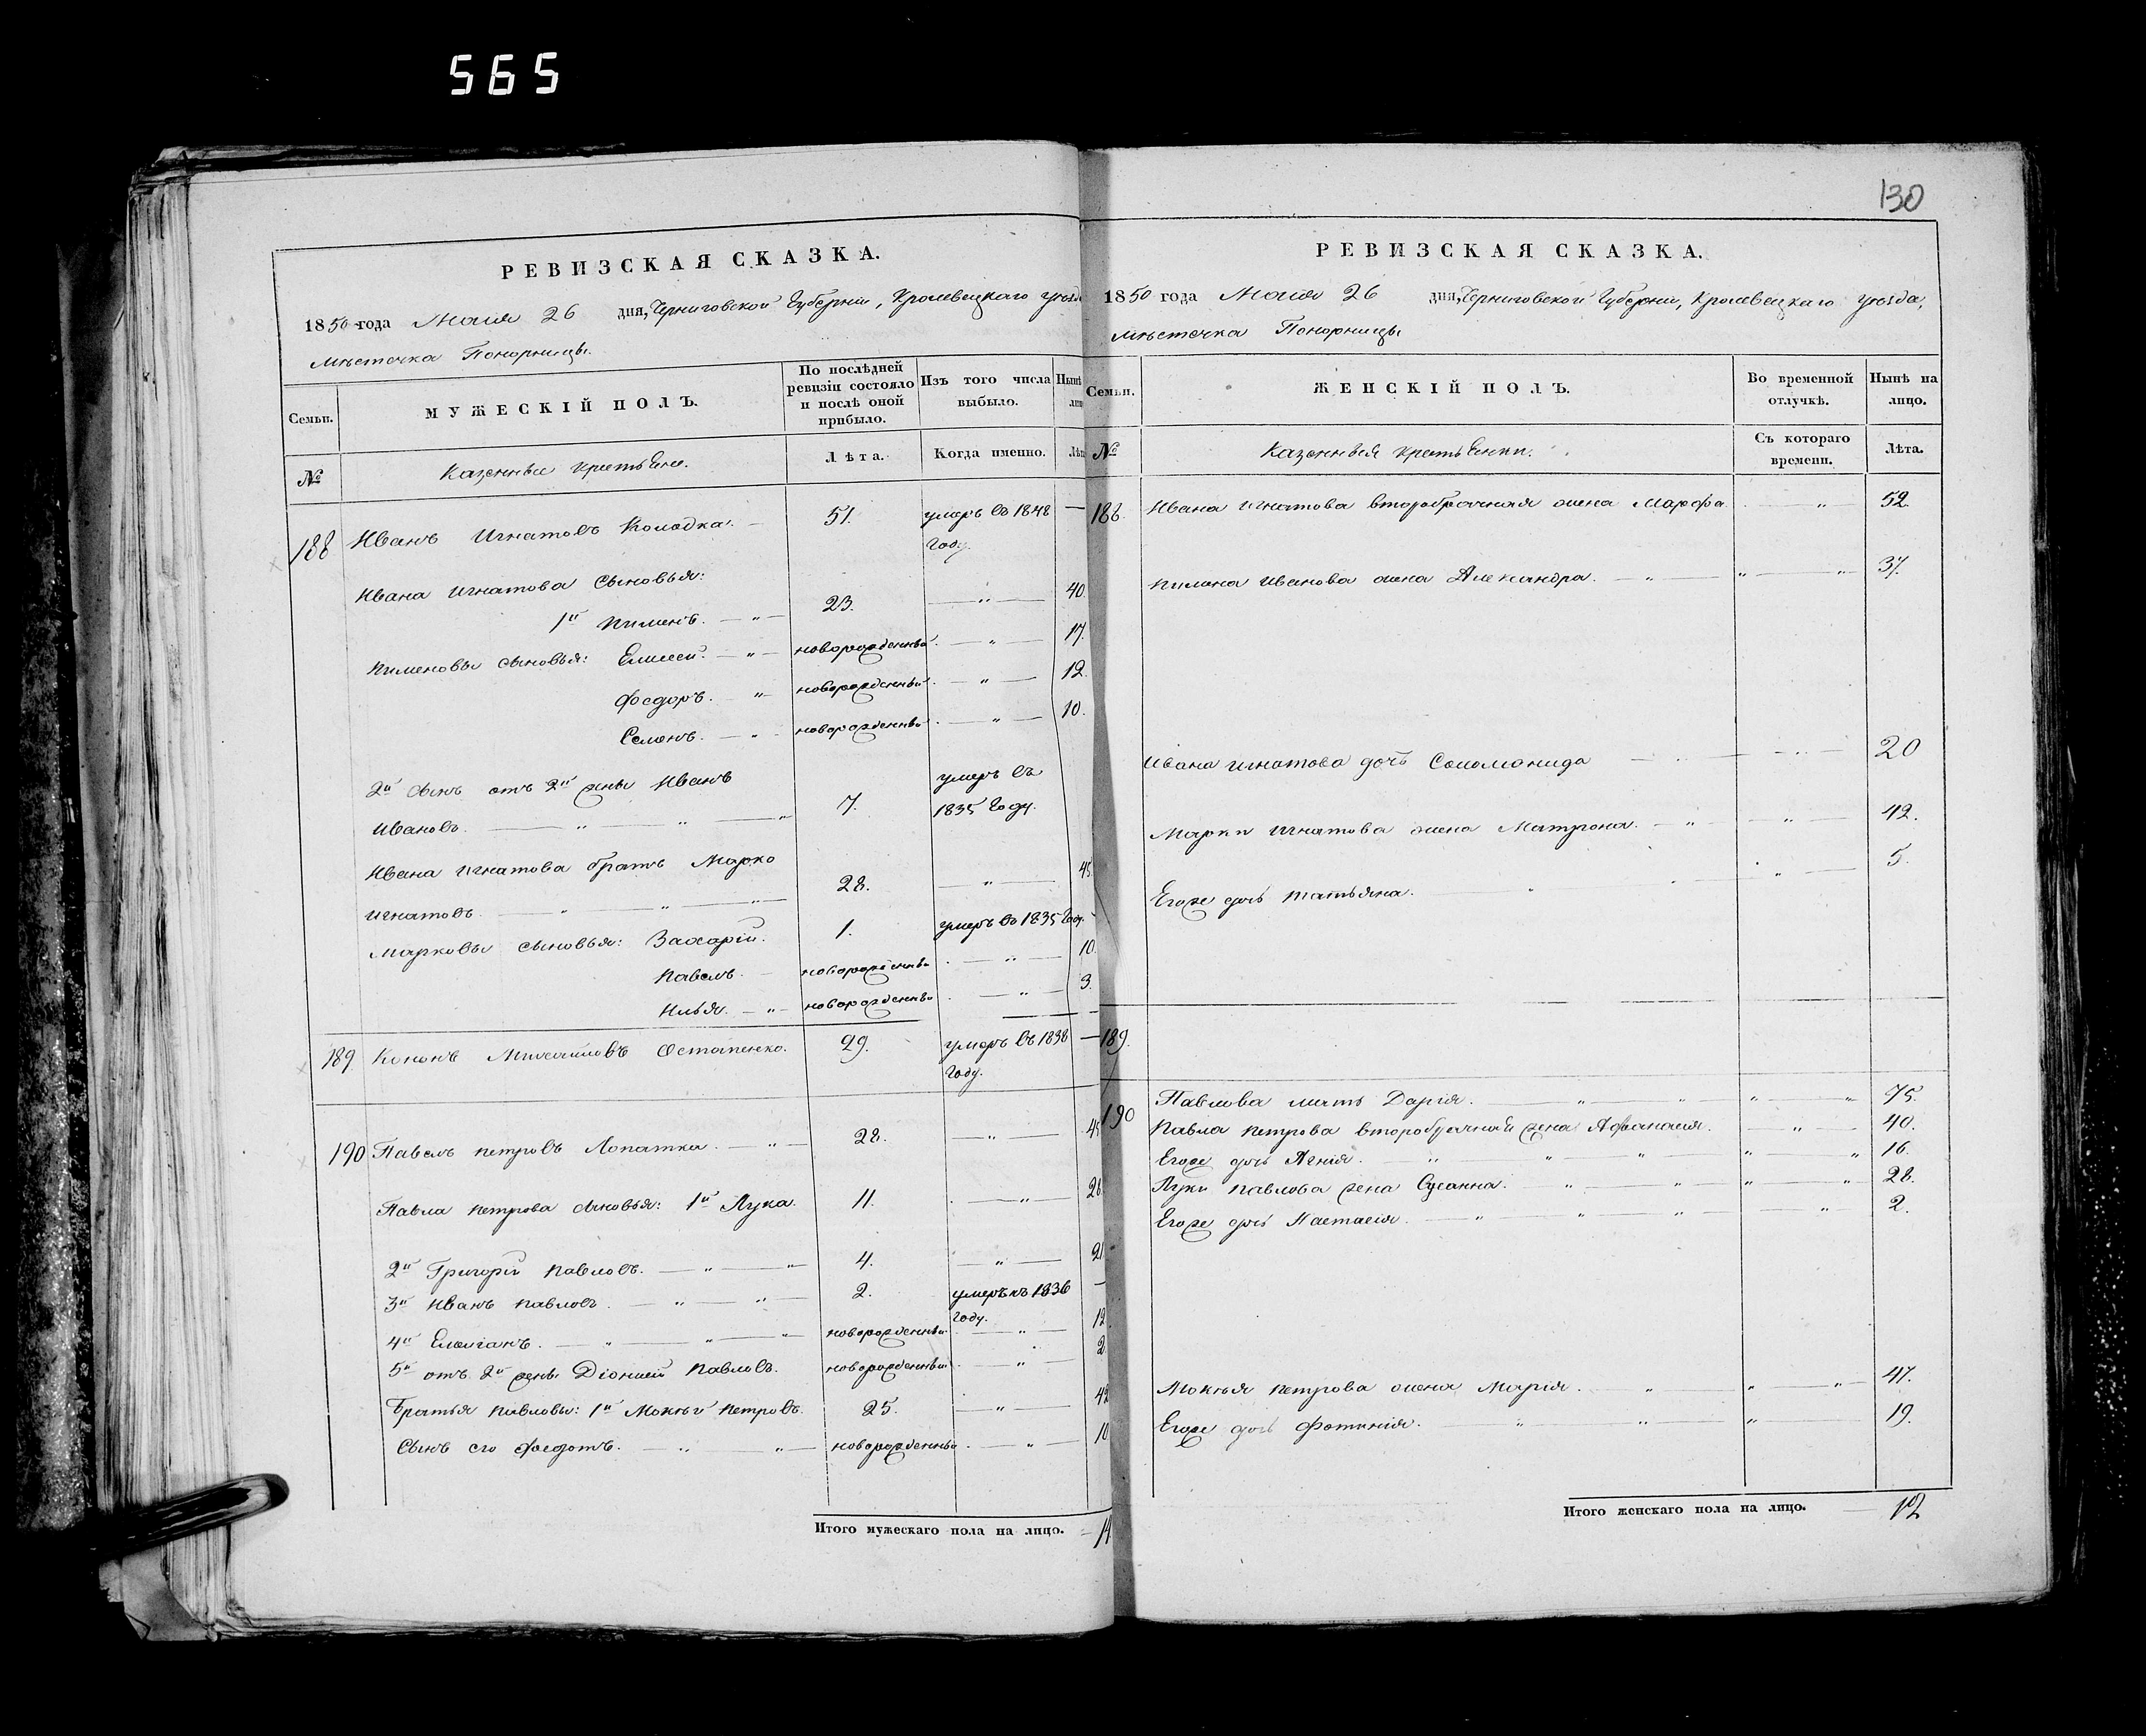 565
РЕВИЗСКАЯ СКАЗКА.
1850 года Маія 26 дня, Черниговской Губерніи, Кролевецкаго уезда
мѣстечка Понорницы.
Семьи.
МУЖЕСКІЙ ПОЛЪ.
По послѣдней ревизіи состояло и послѣ оной прибыло.
Изъ того числа выбыло.
Нынѣ
лицо
№
Казенные крестьяне.
Лѣта.
Когда именно.
Лѣт
188 Иванъ Игнатовъ Колодка. — 51. умеръ въ 1848 —
Году.
Ивана Игнатова Сыновья:
1й Пименъ. — „ — 23. — „ — 40.
Пименовы сыновья: Елисей. — „ — новорожденный. — „ — 17.
Фоедоръ. — „ новорожденный. — „ — 12.
Семенъ. — „ новорожденный. — „ — 10.
2й сынъ отъ 2й жены Иванъ умеръ въ
Ивановъ. — „ — „ — „ 7. 1835 Году.
Ивана Игнатова братъ Марко
Игнатовъ. „ — „ — „ — 28. — „ — 45
Марковы сыновья: Захарій. 1. умеръ въ 1835 Году. -
Павелъ. — новорожденный. — „ — 10.
Илья. — „ — новорожденный. — „ — 3.
189 Кононъ Михайловъ Остапенко. 29. умеръ въ 1838 —
Году.
190 Павелъ Петровъ Лопатка. — „ — 28. — „ — 45
Павла Петрова сыновья: 1й Лука. 11. — „ — 28.
2й Григорій Павловъ. — „ — „ 4. — „ — 21
3й Иванъ Павловъ. — „ — „ — 2. умеръ въ 1836 —
Году.
4й Емиліанъ. — „ — „ — „ новорожденный — „ — 12.
5й отъ 2й жены Діонисій Павловъ. новорожденный. — „ — 2
Братья Павловы: 1й Мокѣй Петровъ. 25. — „ — 42
Сынъ его Фоедотъ. — „ — „ — новорожденный. — „ — 10
Итого мужескаго пола на лицо. — 14
130
РЕВИЗСКАЯ СКАЗКА.
1850 года Маія 26 дня, Черниговской Губерніи, Кролевецкаго уезда,
мѣстечка Понорницы
Семьи.
ЖЕНСКІЙ ПОЛЪ.
Во временной отлучкѣ.
Нынѣ на лицо.
№
Казенныя крестьянки.
Съ котораго времени.
Лѣта.
188. Ивана Игнатова второбрачная жена Марфа. — „ — 52.
Пимена Иванова жена Александра. — „ — „ — „ 37.
Ивана Игнатова дочь Соломонида — „ — 20
Марки Игнатова жена Матрона. — „ — „ — 42.
Егоже дочь Татьяна. — „ — 5.
189.
190 Павлова мать Дарія. — „ — „ — „ 75.
Павла Петрова второбрачная жена Афанасія. — „ — 40.
Егоже дочь Агнія. — „ — „ — „ — „ 16.
Луки Павлова жена Сусанна. „ — „ — „ 28.
Егоже дочь Настасія. — „ — „ — „ — „ 2.
Мокѣя Петрова жена Марія. „ — „ — „ 47.
Егоже дочь Фотинія. „ — „ — „ 19.
Итого женскаго пола на лицо. — 12